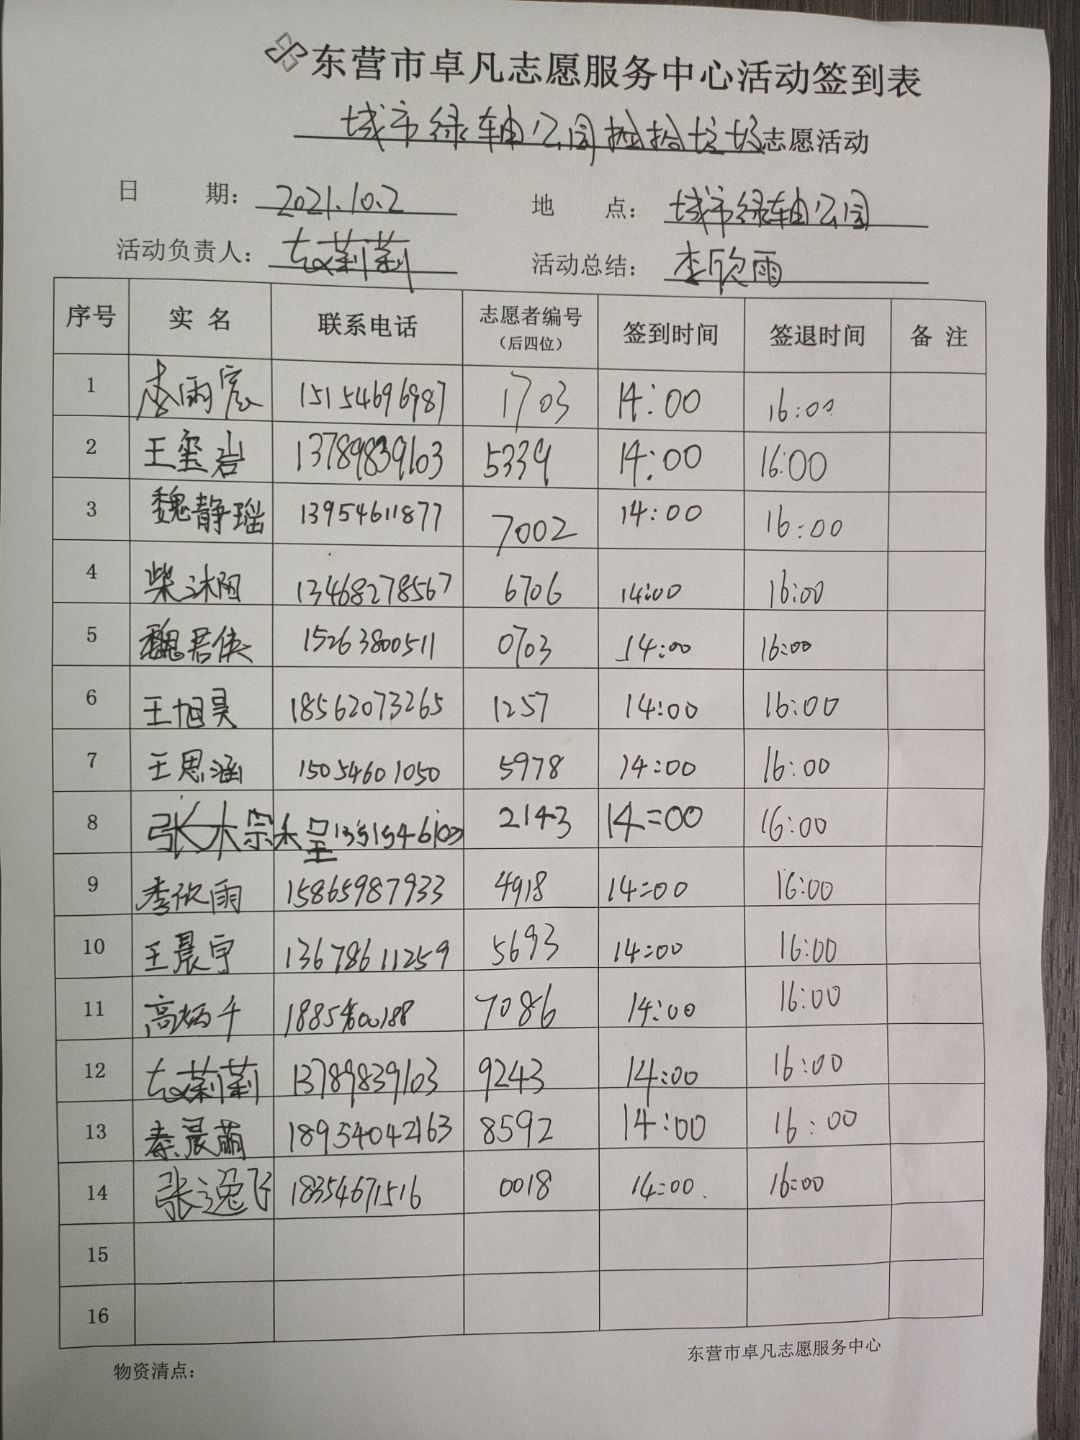 东营市卓凡志愿服务中心活动签到表
城市绿轴公园捡拾垃圾志愿活动
日 期: 2021.10.2 地 点: 城市绿轴公园
活动负责人: 莉莉 活动总结: 李欣雨
序号 实名 联系电话 志愿者编号(后四位) 签到时间 签退时间 备注
1 李雨宸 15154696987 1703 14:00 16:00
2 王玺岩 13789839103 5339 14:00 16:00
3 魏静瑶 13954611877 7002 14:00 16:00
4 柴沐阳 13468278567 6706 14:00 16:00
5 魏君侠 15263800511 0703 14:00 16:00
6 王旭昊 18562073265 1257 14:00 16:00
7 王思涵 15054601050 5978 14:00 16:00
8 张 2143 14:00 16:00
9 李欣雨 15865987933 4918 14:00 16:00
10 王晨宇 13678611259 5693 14:00 16:00
11 高炳千 7086 14:00 16:00
12 莉莉 13789839103 9243 14:00 16:00
13 秦晨萌 18954042163 8592 14:00 16:00
14 张逸飞 18354671516 0018 14:00 16:00
15
16
物资清点: 东营市卓凡志愿服务中心